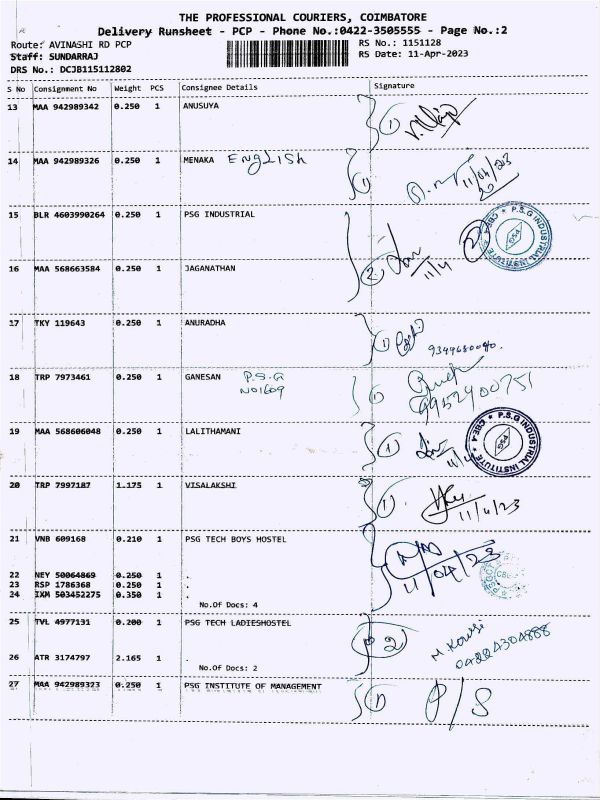 THE PROFESSIONAL COURIERS, COIMBATORE
Delivery Runsheet - PCP - Phone No.:0422-3505555 - Page No.:2
Route: AVINASHI RD PCP RS No.: 1151128
Staff: SUNDARRAJ RS Date: 11-Apr-2023
DRS No.: DCJB115112802
S No Consignment No Weight PCS Consignee Details Signature
13 MAA 942989342 0.250 1 ANUSUYA 1
14 MAA 942989326 0.250 1 MENAKA ENGLISH 1 11/04/23
15 BLR 4603990264 0.250 1 PSG INDUSTRIAL 2 11/4 2 P.S.G INDUSTRIAL INSTITUTE CBE-4
16 MAA 568663584 0.250 1 JAGANATHAN
17 TKY 119643 0.250 1 ANURADHA 1
18 TRP 7973461 0.250 1 GANESAN P.S.G 1
NO1609 9952400751
19 MAA 568606048 0.250 1 LALITHAMANI 1 11/4 P.S.G INDUSTRIAL INSTITUTE CBE-4
20 TRP 7997187 1.175 1 VISALAKSHI 1 11/4/23
21 VNB 609168 0.210 1 PSG TECH BOYS HOSTEL 11/04/23
22 NEY 50064869 0.250 1 .
23 RSP 1786368 0.250 1 .
24 IXM 503452275 0.350 1 .
No.Of Docs: 4
25 TVL 4977131 0.200 1 PSG TECH LADIESHOSTEL 2
04224304888
26 ATR 3174797 2.165 1 .
No.Of Docs: 2
27 MAA 942989323 0.250 1 PSG INSTITUTE OF MANAGEMENT 1 P/S